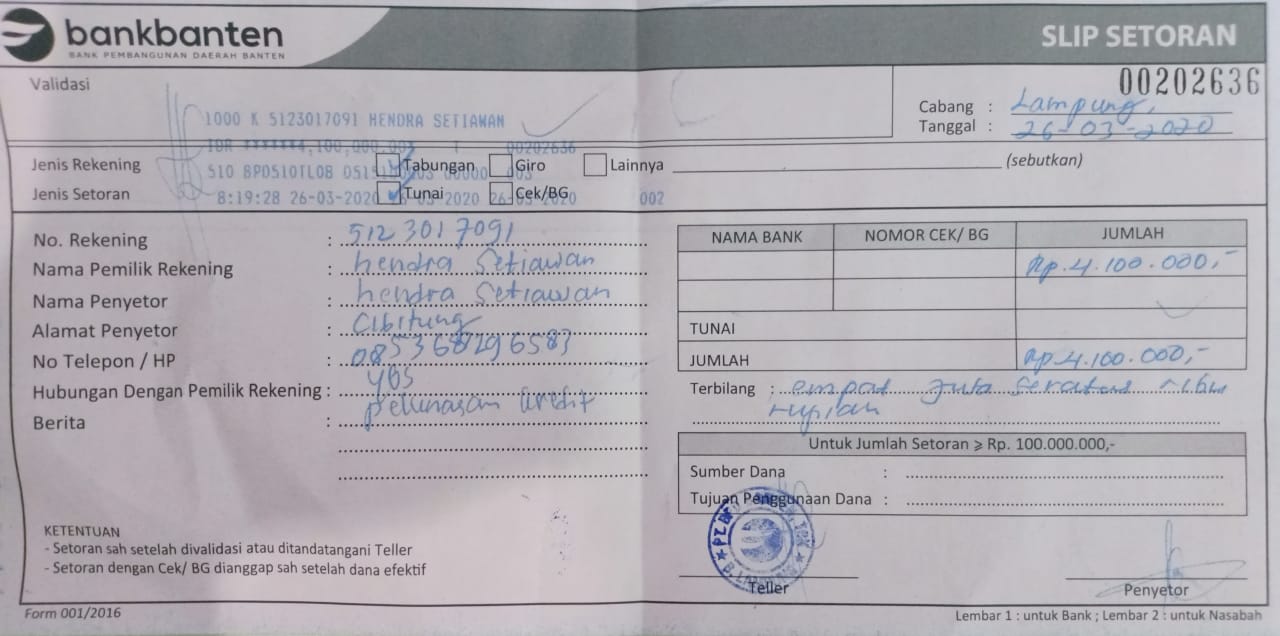 bankbanten
BANK PEMBANGUNAN DAERAH BANTEN
SLIP SETORAN
00202636
Validasi
Cabang : Lampung,
Tanggal : 26-03-2020
1000 K 5123017091 HENDRA SETIAWAN
IDR ******4,100,000.00 00202636
Jenis Rekening Tabungan Giro Lainnya (sebutkan)
510 BP0510TL08
Jenis Setoran Tunai Cek/BG
8:19:28 26-03-2020 002
No. Rekening : 5123017091
Nama Pemilik Rekening : hendra Setiawan
Nama Penyetor : hendra Setiawan
Alamat Penyetor : Cibitung
No Telepon / HP : 085368296583
Hubungan Dengan Pemilik Rekening : ybs
Berita : pelunasan kredit
NAMA BANK NOMOR CEK/ BG JUMLAH
Rp.4.100.000,-
TUNAI
JUMLAH Rp.4.100.000,-
Terbilang : empat Juta Seratus ribu
rupiah
Untuk Jumlah Setoran ⩾ Rp. 100.000.000,-
Sumber Dana :
Tujuan Penggunaan Dana :
KETENTUAN
- Setoran sah setelah divalidasi atau ditandatangani Teller
- Setoran dengan Cek/ BG dianggap sah setelah dana efektif
Teller
Penyetor
Form 001/2016
Lembar 1 : untuk Bank ; Lembar 2 : untuk Nasabah